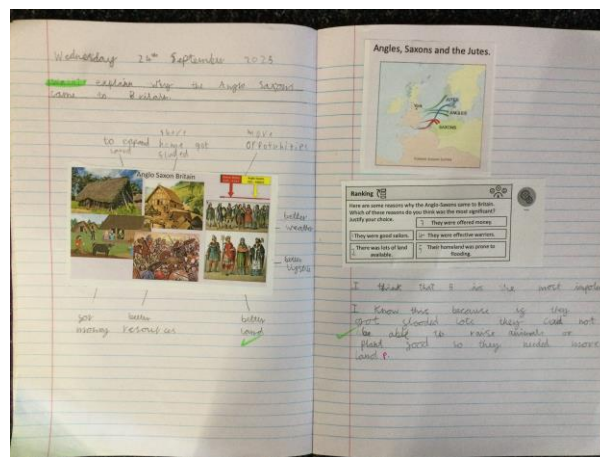 Wednesday 24th September 2025
explain why the Anglo Saxons
came to Britain.
to expand
land
there
home got
flooded
more
opportunities
Anglo Saxon Britain
better
weather
better
for
money
better
resources
better
land
Angles, Saxons and the Jutes.
JUTES
ANGLES
SAXONS
Ranking
Here are some reasons why the Anglo-Saxons came to Britain.
Which of these reasons do you think was the most significant?
Justify your choice.
They were offered money.
They were good sailors.
They were effective warriors.
There was lots of land
available.
Their homeland was prone to
flooding.
I think that is the most
I know this because if they
got flooded lots they could not
be able to raise animals or
plant food so they needed more
land